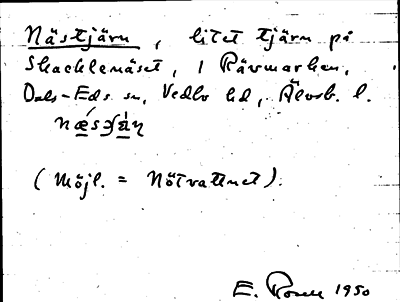 Nästjärn, litet tjärn på
Skacklenäset, i Rävmarken,
Dals-Eds sn, Vedbo hd, Älvsb. l.
(Möjl. = Nötvattnet).
E. 1950